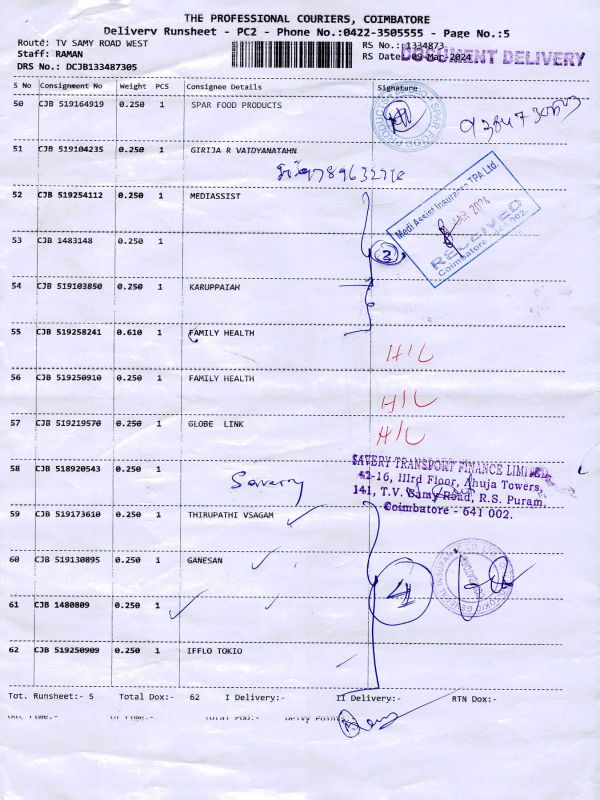 THE PROFESSIONAL COURIERS, COIMBATORE
Delivery Runsheet - PC2 - Phone No.:0422-3505555 - Page No.:5
Route: TV SAMY ROAD WEST
RS No.:1334873
Staff: RAMAN
RS Date:09-Mar-2024
DOCUMENT DELIVERY
DRS No.: DCJB133487305
S No Consignment No Weight PCS Consignee Details Signature
50 CJB 519164919 0.250 1 SPAR FOOD PRODUCTS
51 CJB 519104235 0.250 1 GIRIJA R VAIDYANATAHN
52 CJB 519254112 0.250 1 MEDIASSIST
Medi Assist Insurance TPA Ltd.
MAR 2024
RECEIVED
Coimbatore 641 002.
53 CJB 1483148 0.250 1
3
54 CJB 519103850 0.250 1 KARUPPAIAH
55 CJB 519258241 0.610 1 FAMILY HEALTH
H/L
56 CJB 519250910 0.250 1 FAMILY HEALTH
H/L
57 CJB 519219570 0.250 1 GLOBE LINK
H/L
58 CJB 518920543 0.250 1
Savery
SAVERY TRANSPORT FINANCE LIMITED
42-16, IIIrd Floor, Ahuja Towers,
141, T.V. Samy Road, R.S. Puram,
Coimbatore - 641 002.
59 CJB 519173610 0.250 1 THIRUPATHI VSAGAM
60 CJB 519130895 0.250 1 GANESAN
4
61 CJB 1480809 0.250 1
62 CJB 519250909 0.250 1 IFFLO TOKIO
Tot. Runsheet:- 5 Total Dox:- 62 I Delivery:- II Delivery:- RTN Dox:-
Out Time:- In Time:- Total POD:- Delvy Point